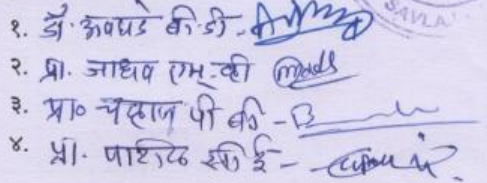 १. डॉ. अवघडे बी. डी -
२. प्रा. जाधव एम्. व्ही
३. प्रा० चव्हाण पी बी -
४. प्रा. पाटील सी ई -
SAVLA